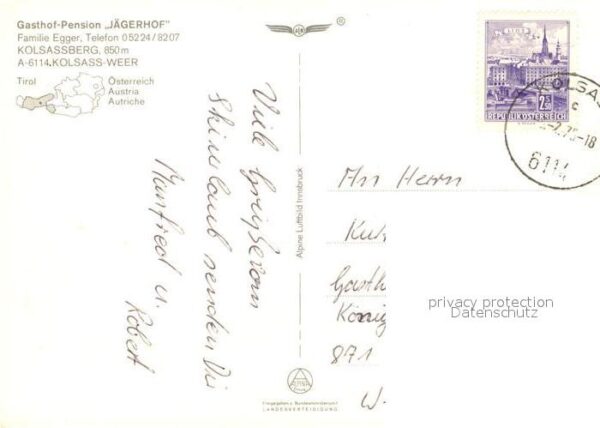 Gasthof-Pension „JÄGERHOF"
Familie Egger, Telefon 05224/8207
KOLSASSBERG, 850m
A-6114 KOLSASS-WEER
Tirol
Österreich
Austria
Autriche
Viele Grüße vom
Skiurlaub senden Dir
Manfred u.
Robert
Alpine Luftbild Innsbruck
ALPINE
Freigegeben v. Bundesministerium f.
LANDESVERTEIDIGUNG
LINZ
2.50
REPUBLIK ÖSTERREICH
KOLSAS
c
.75-18
6114
An Herrn
Kur
Gasth
König
871
W-
privacy protection
Datenschutz